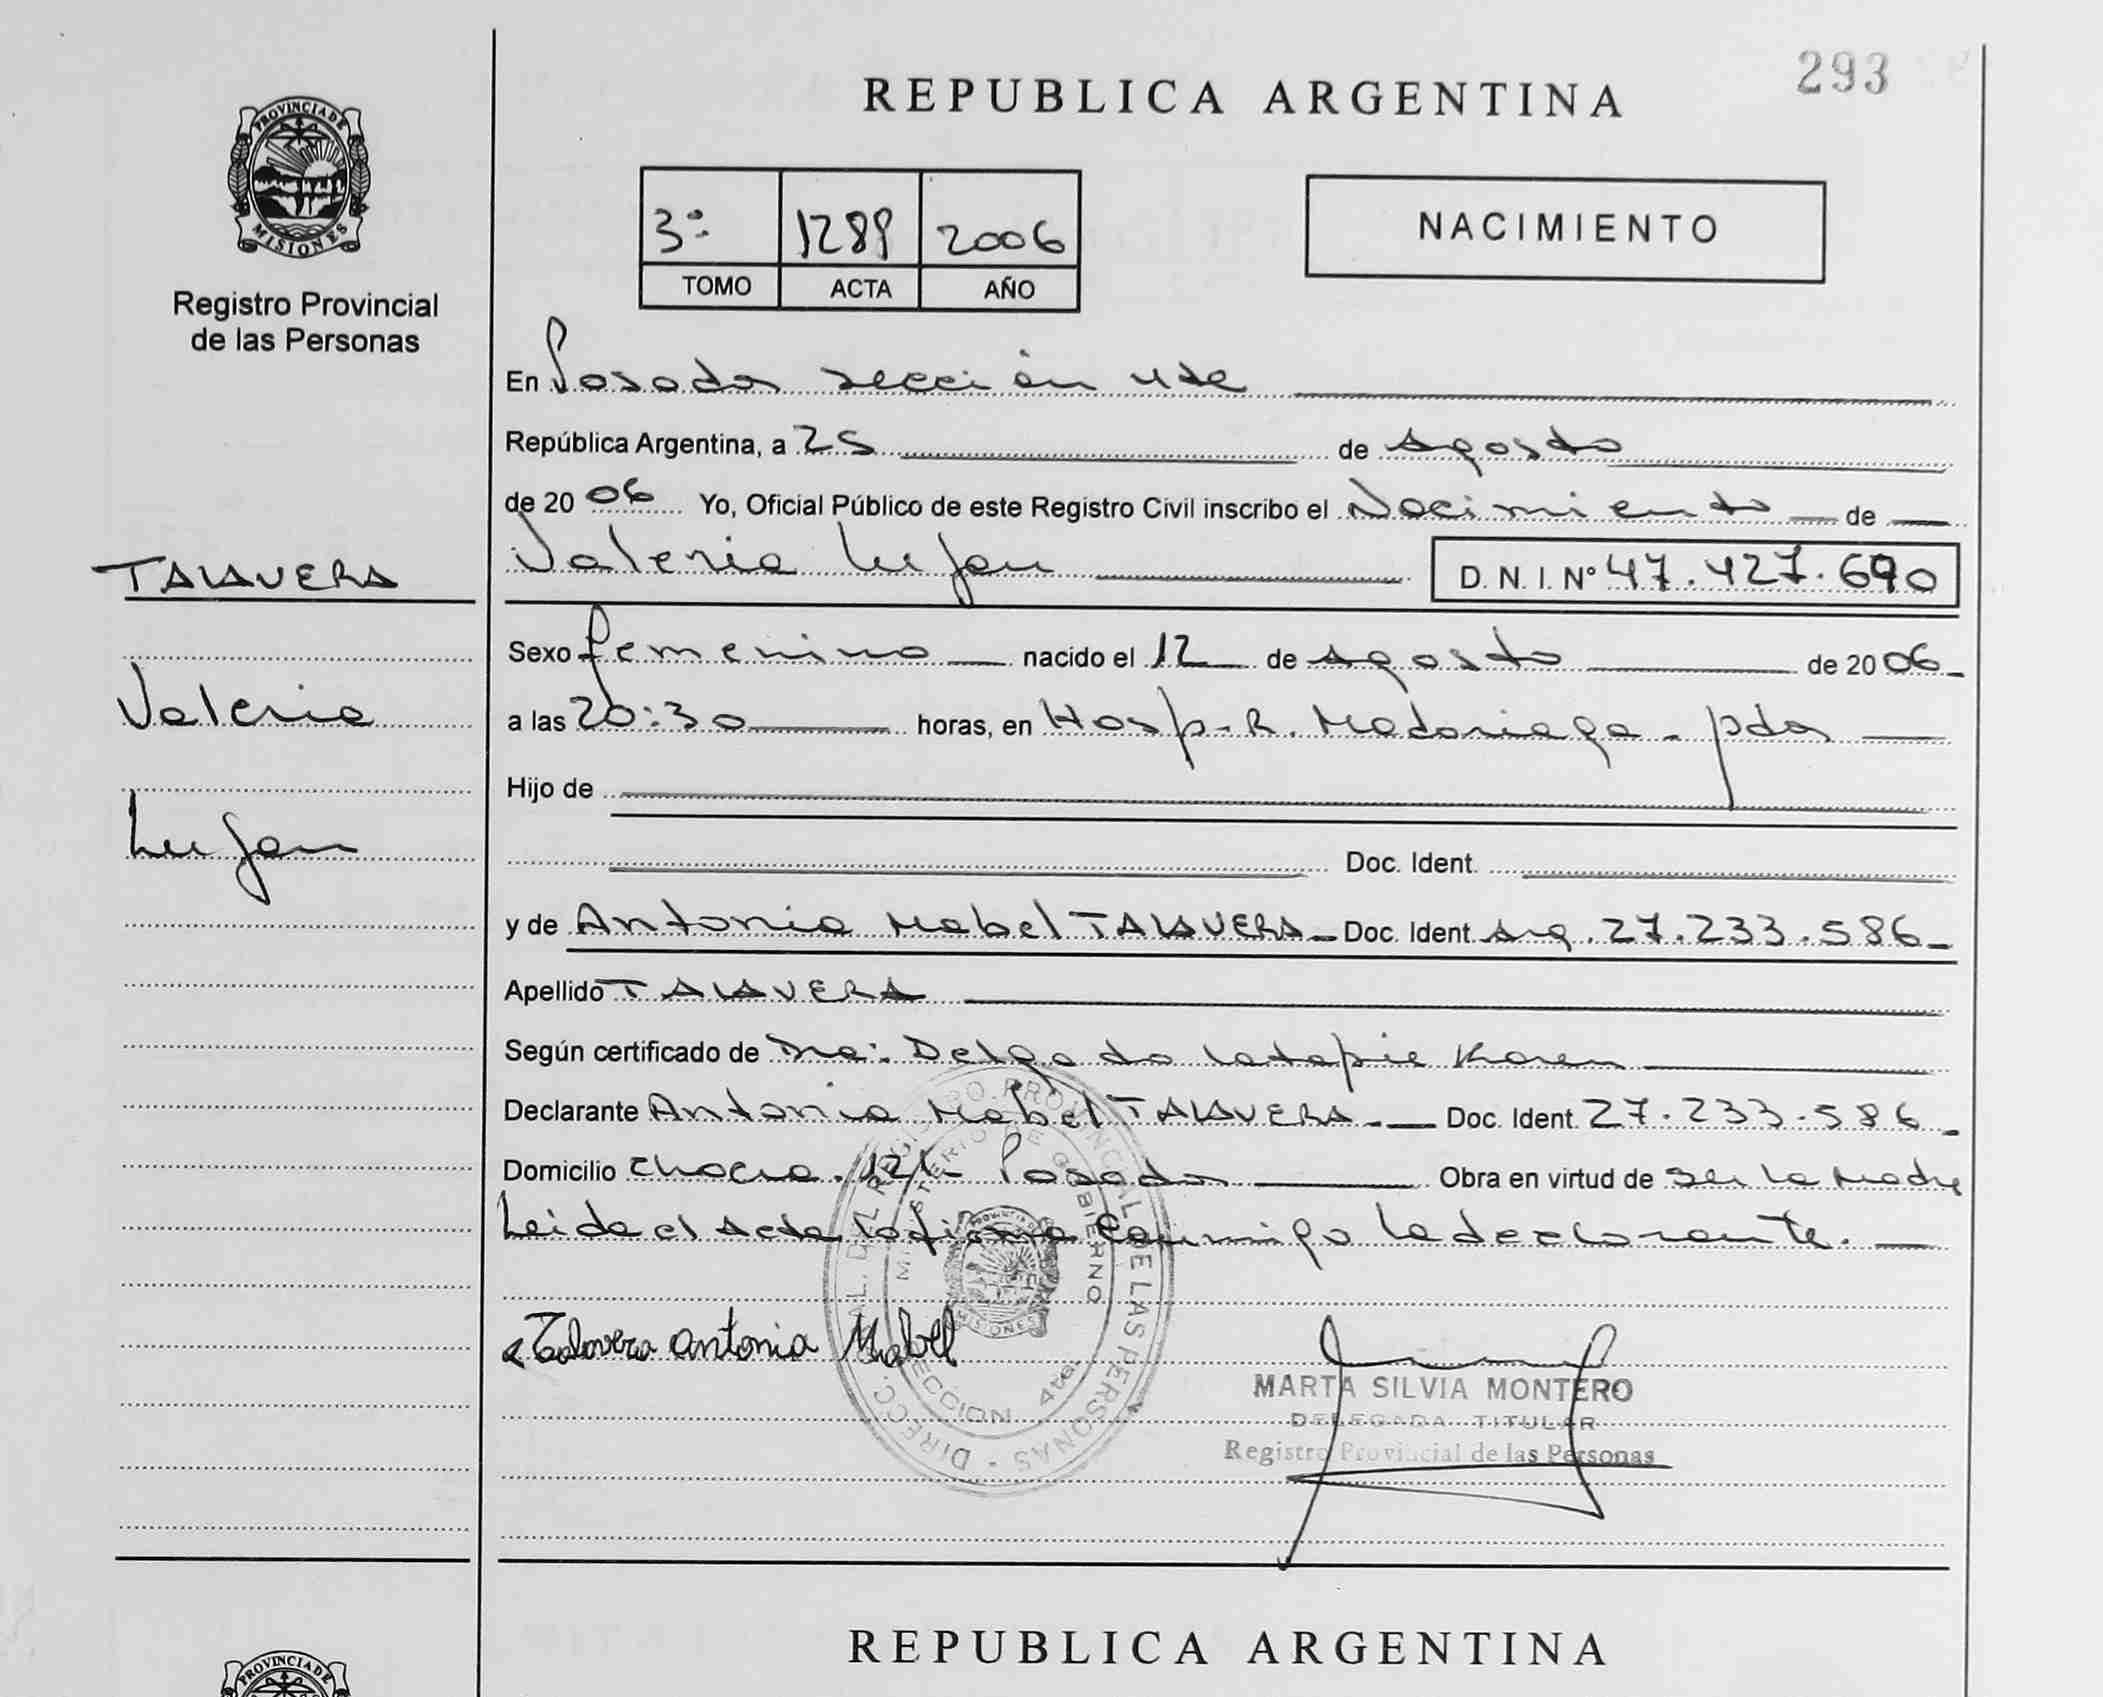 293
REPUBLICA ARGENTINA
PROVINCIA DE
MISIONES
Registro Provincial
de las Personas
3º 1289 2006
TOMO ACTA AÑO
NACIMIENTO
En Posadas sección 4ta
República Argentina, a 25 de Agosto
de 2006 Yo, Oficial Público de este Registro Civil inscribo el Nacimiento de
Valeria Lujan D. N. I. Nº 47.427.690
TALAVERA
Valeria
Lujan
Sexo femenino nacido el 12 de Agosto de 2006
a las 20:30 horas, en Hosp. R. Madariaga - pdas
Hijo de
Doc. Ident.
y de Antonia Mabel TALAVERA Doc. Ident. Arg. 27.233.586
Apellido TALAVERA
Según certificado de Dra: Delgado Latapie Karen
Declarante Antonia Mabel TALAVERA. Doc. Ident. 27.233.586
Domicilio Chacra. Posadas Obra en virtud de ser la Madre
Leida el Acta la firma Conmigo la declarante.
Talavera Antonia Mabel
DIRECC. GRAL. DEL REGISTRO PROVINCIAL DE LAS PERSONAS
MINISTERIO DE GOBIERNO
SECCION 4ta
MISIONES
MARTA SILVIA MONTERO
DELEGADA TITULAR
Registro Provincial de las Personas
REPUBLICA ARGENTINA
PROVINCIA DE